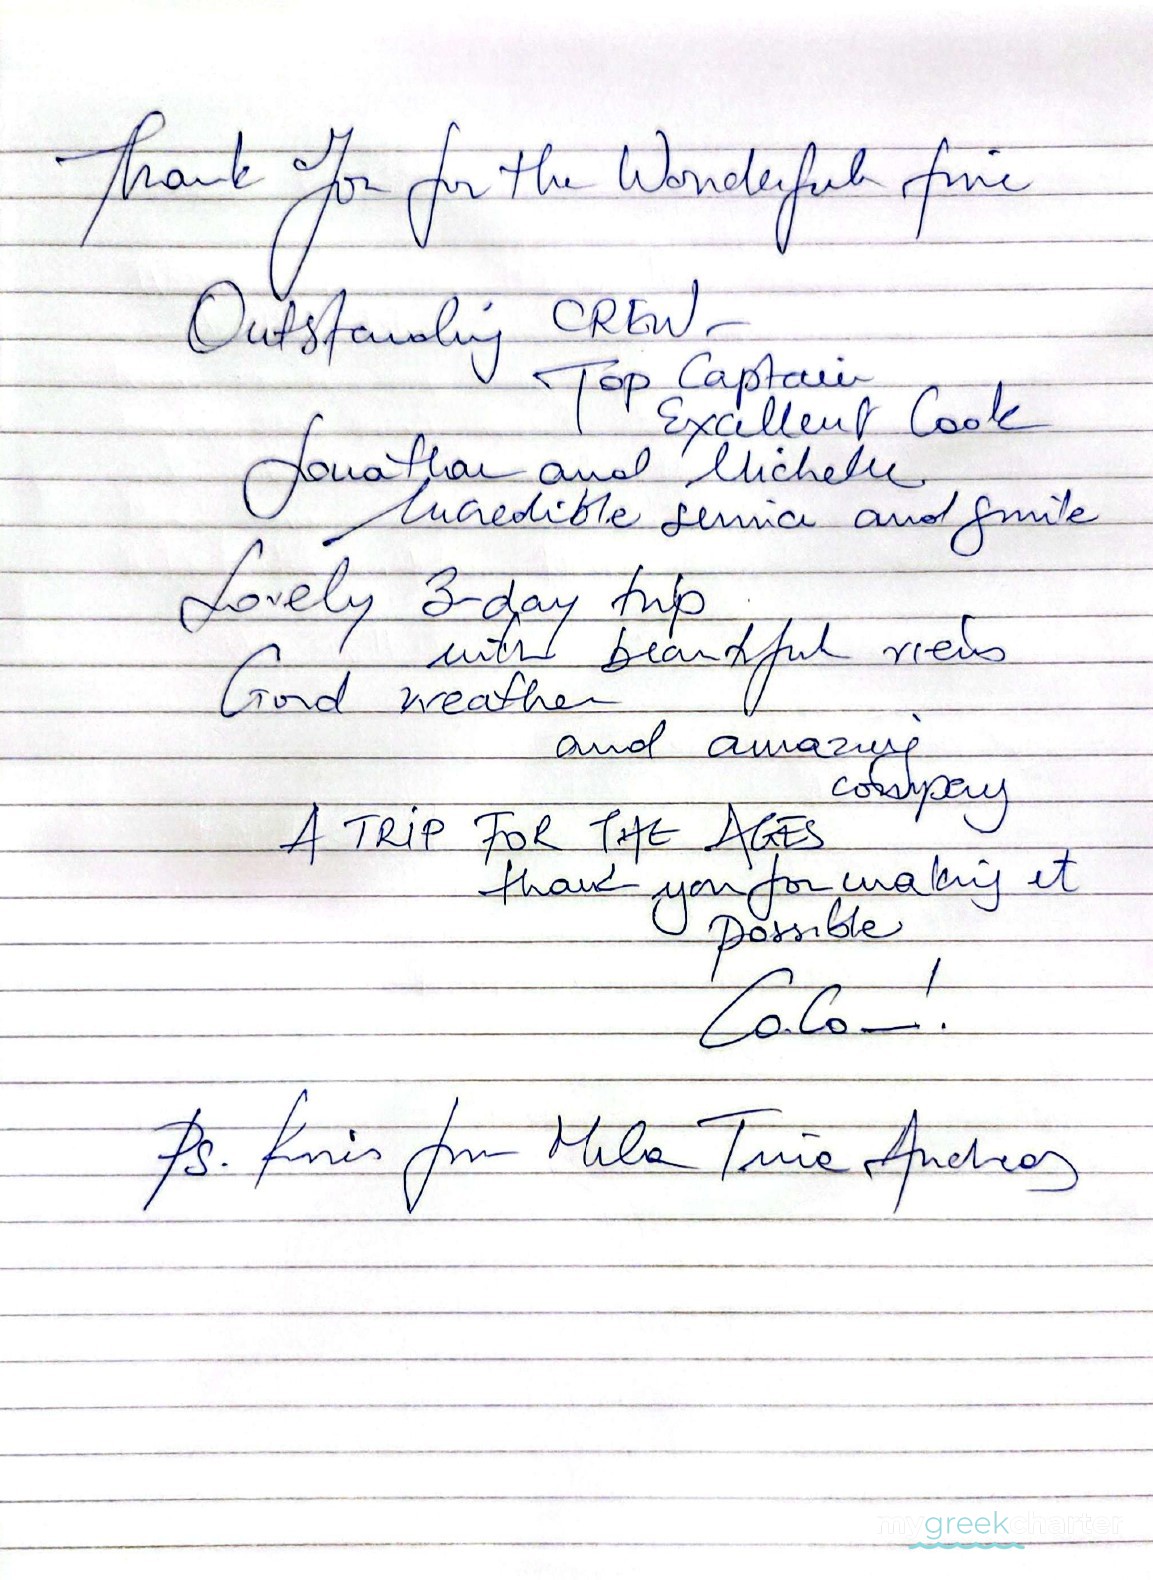 Thank You for the Wonderful time
Outstanding CREW -
Top Captain
Excellent Cook
Jonathan and Michelle
Incredible service and smile
Lovely 3-day trip
with beautiful views
Good weather
and amazing
company
A TRIP FOR THE AGES
thank you for making it
possible
!
Ps. from Mila Tina Andreas
mygreekcharter